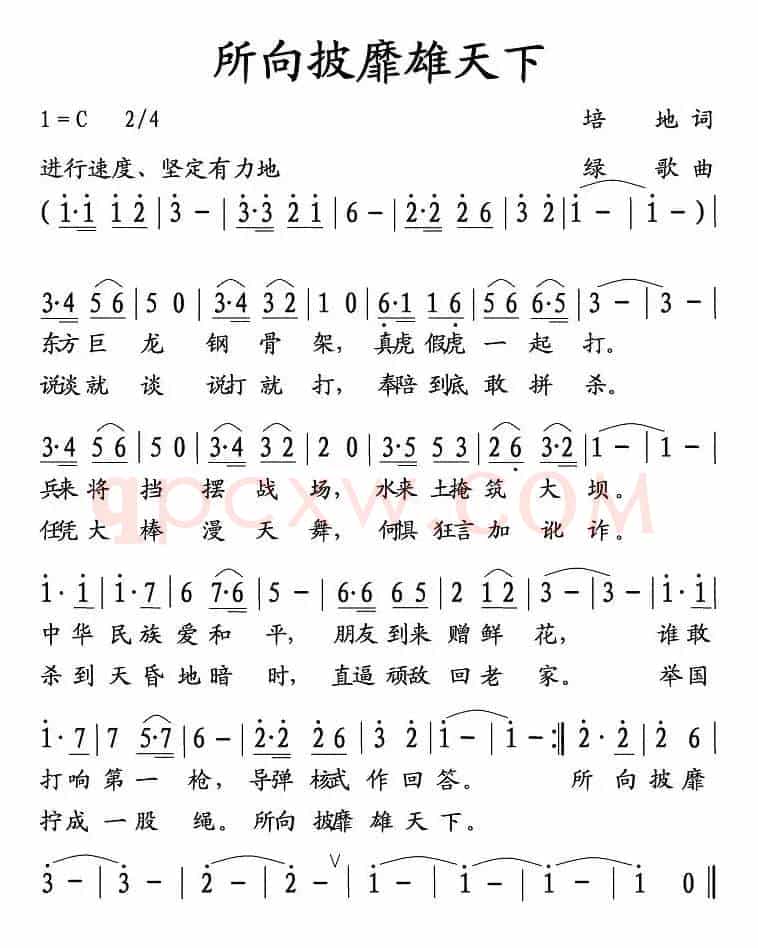 所向披靡雄天下
1 = C 2/4 培 地 词
进行速度、坚定有力地 绿 歌 曲
( 1·1 1 2 | 3 – | 3·3 2 1 | 6 – | 2·2 2 6 | 3 2 | 1 – | 1 – ) |
3·4 5 6 | 5 0 | 3·4 3 2 | 1 0 | 6·1 1 6 | 5 6 6·5 | 3 – | 3 – |
东方巨 龙 钢 骨 架, 真虎 假虎 一 起 打。
说谈就 谈 说打 就 打, 奉陪 到底 敢 拼 杀。
3·4 5 6 | 5 0 | 3·4 3 2 | 2 0 | 3·5 5 3 | 2 6 3·2 | 1 – | 1 – |
兵来将 挡 摆 战 场, 水来 土掩 筑 大 坝。
任凭大 棒 漫 天 舞, 何惧 狂言 加 讹 诈。
qpcxw.COM
1· 1 | 1· 7 | 6 7·6 | 5 – | 6·6 6 5 | 2 1 2 | 3 – | 3 – | 1· 1 |
中 华 民 族 爱 和 平, 朋友 到来 赠 鲜 花, 谁 敢
杀 到 天 昏 地 暗 时, 直逼 顽敌 回 老 家。 举 国
1· 7 | 7 5·7 | 6 – | 2·2 2 6 | 3 2 | 1 – | 1 – :‖ 2· 2 | 2 6 |
打 响 第 一 枪, 导弹 核武 作 回 答。 所 向 披 靡
拧 成 一 股 绳。 所向 披靡 雄 天 下。
3 – | 3 – | 2 – | 2 – ∨ | 1 – | 1 – | 1 – | 1 0 ‖